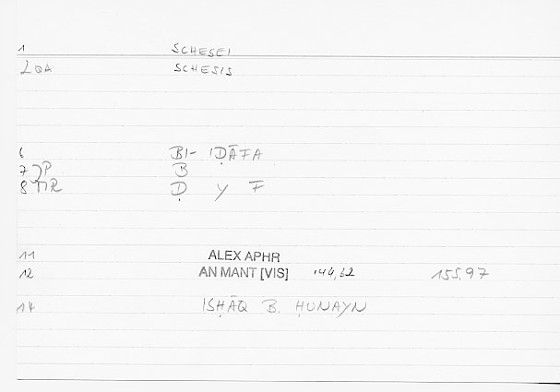 1 SCHESEI
2 QA SCHESIS
6 BI- IḌĀFA
7 JP B
8 MR Ḍ Y F
11 ALEX APHR
12 AN MANT [VIS] 144,62 155,97
14 ISḤĀQ B. ḤUNAYN